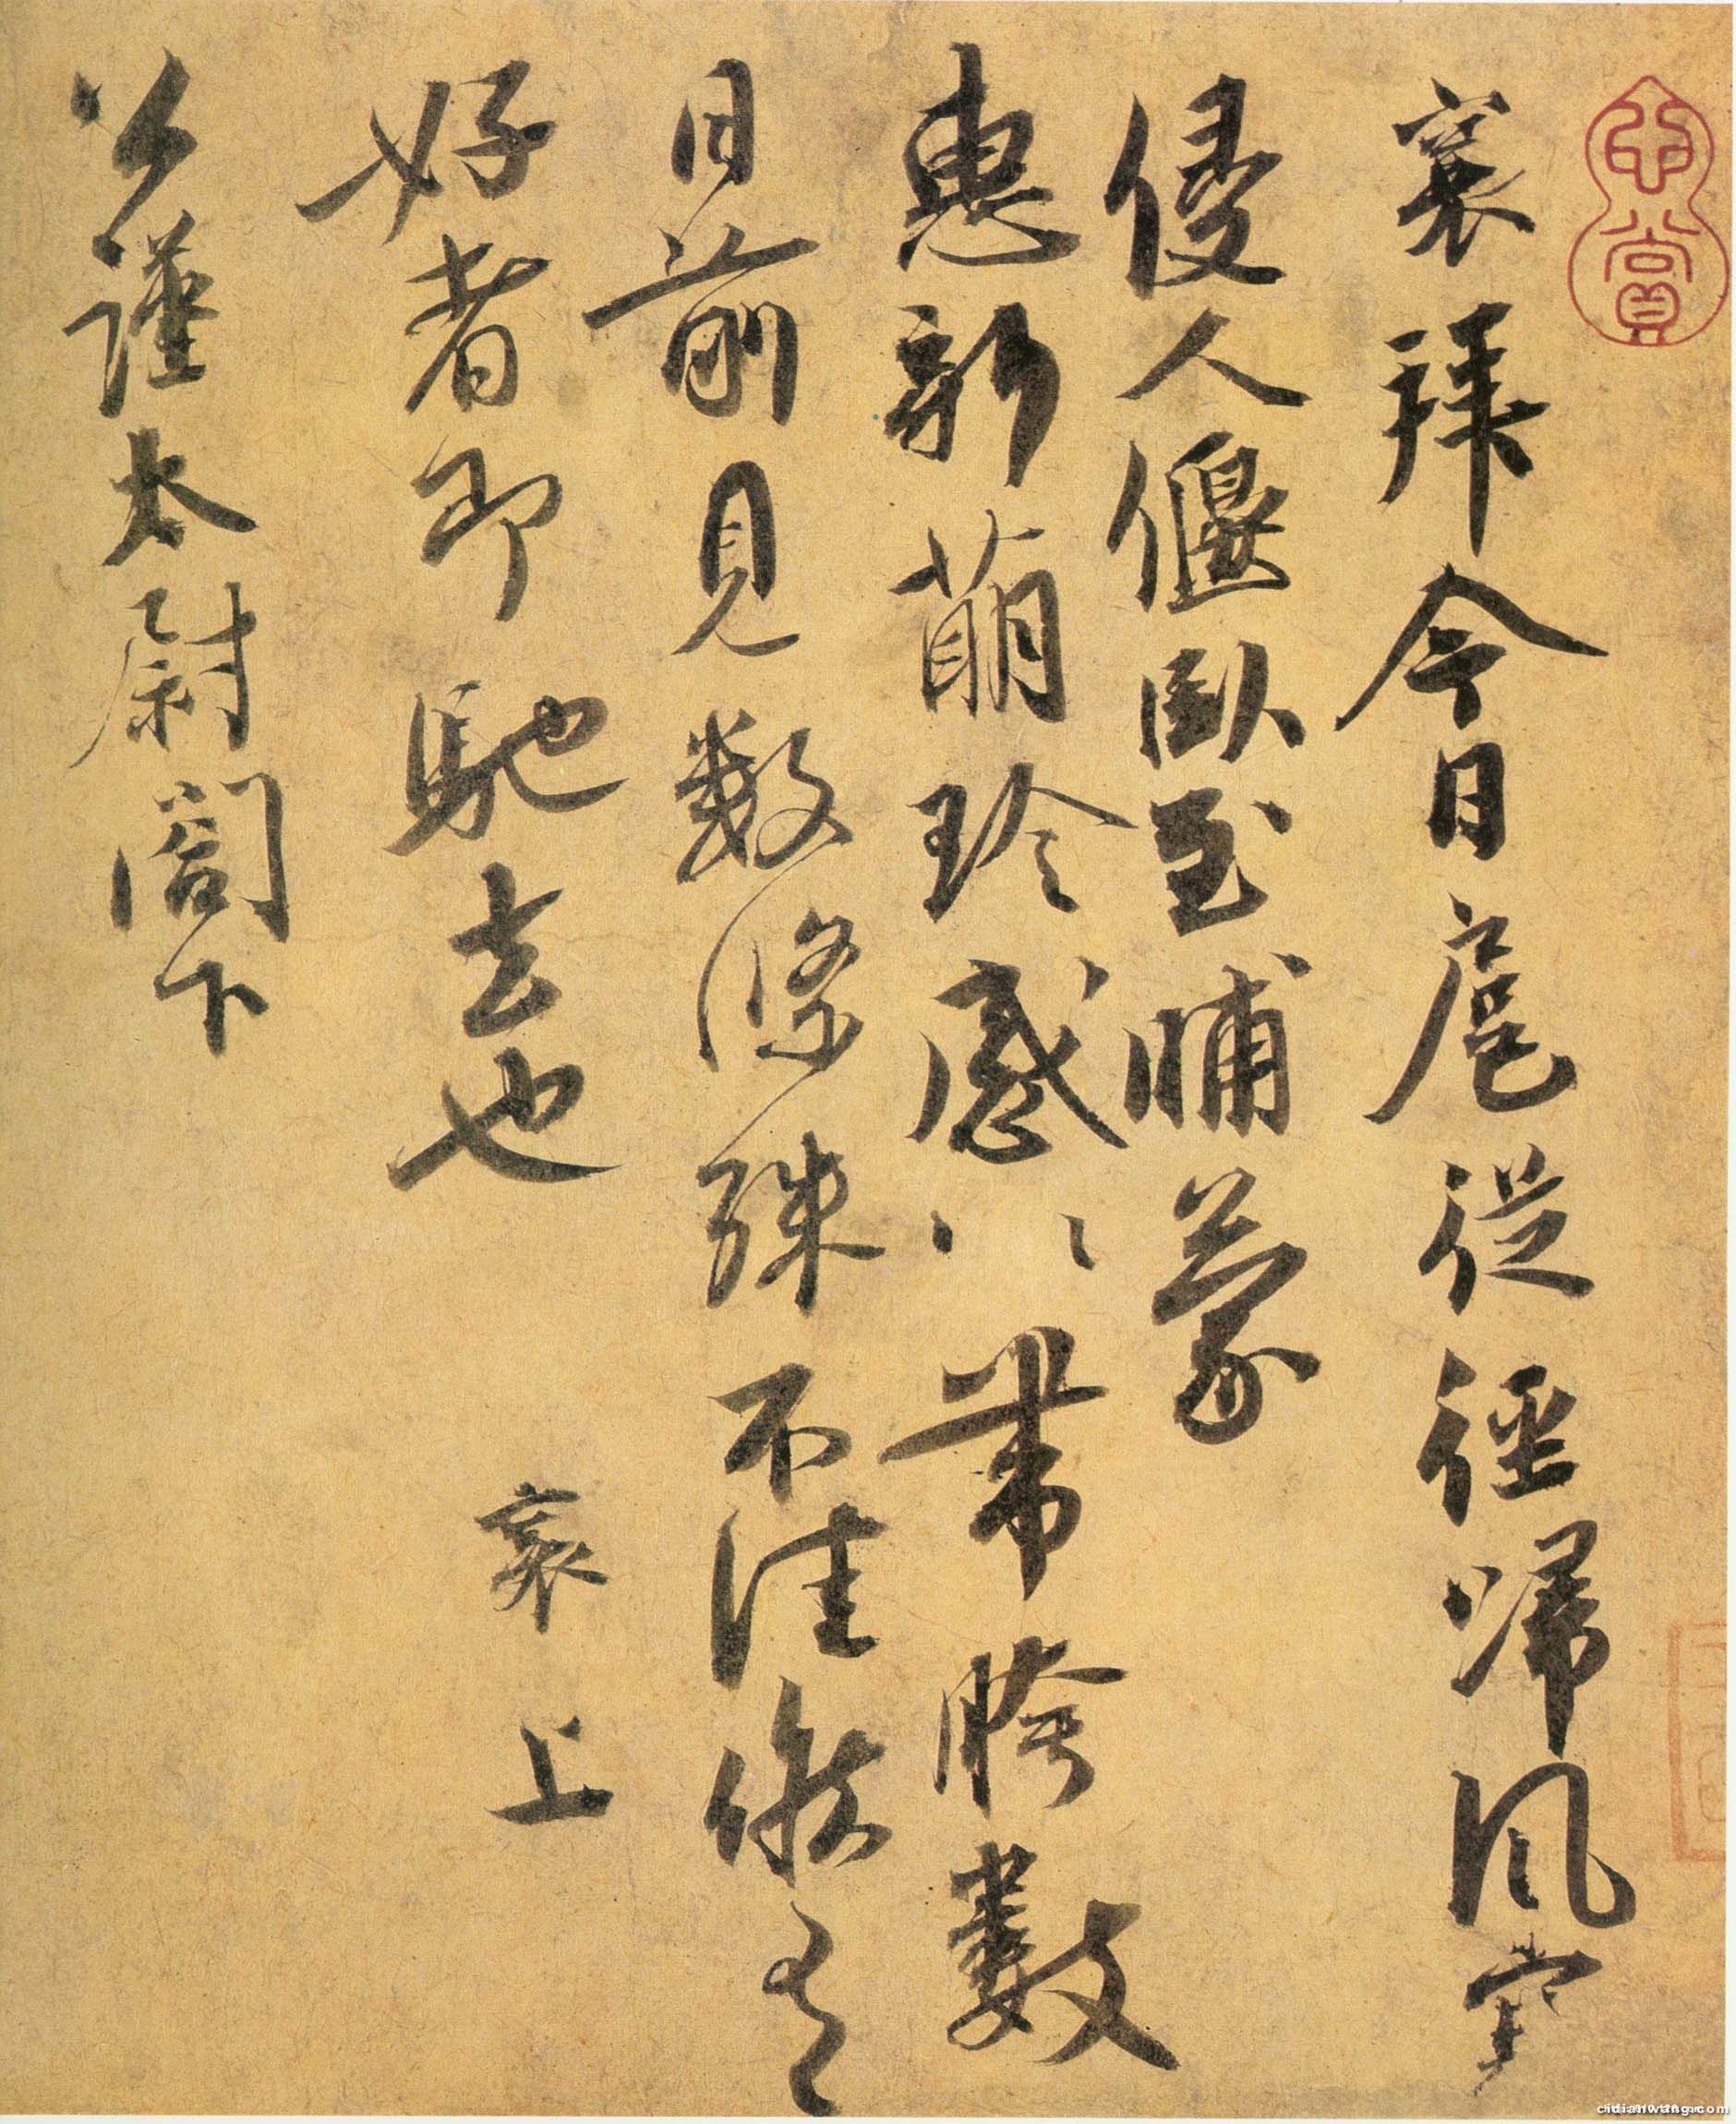 襄拜今日扈從徑歸風寒
侵人偃臥至晡蒙
惠新萌珍感〻〻帶胯數
日前見数條殊不佳候有
好者即馳去也 襄上
公謹太尉閤下
cidianwang.com